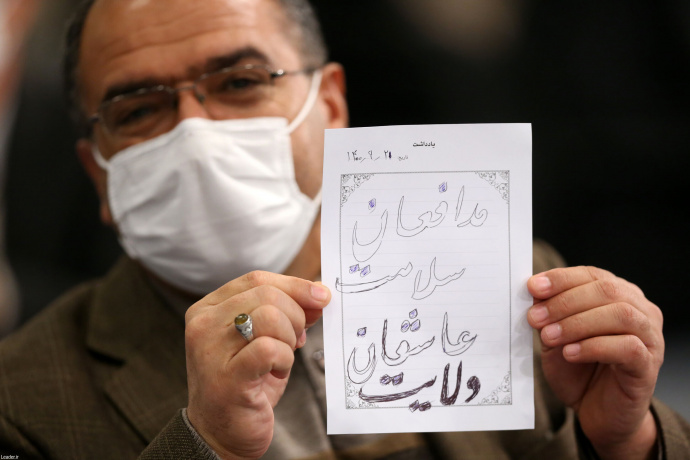 یادداشت
تاریخ ۱۴۰۰/۹/۲۱
مدافعان
سلامت
عاشقان
ولایت
Leader.ir